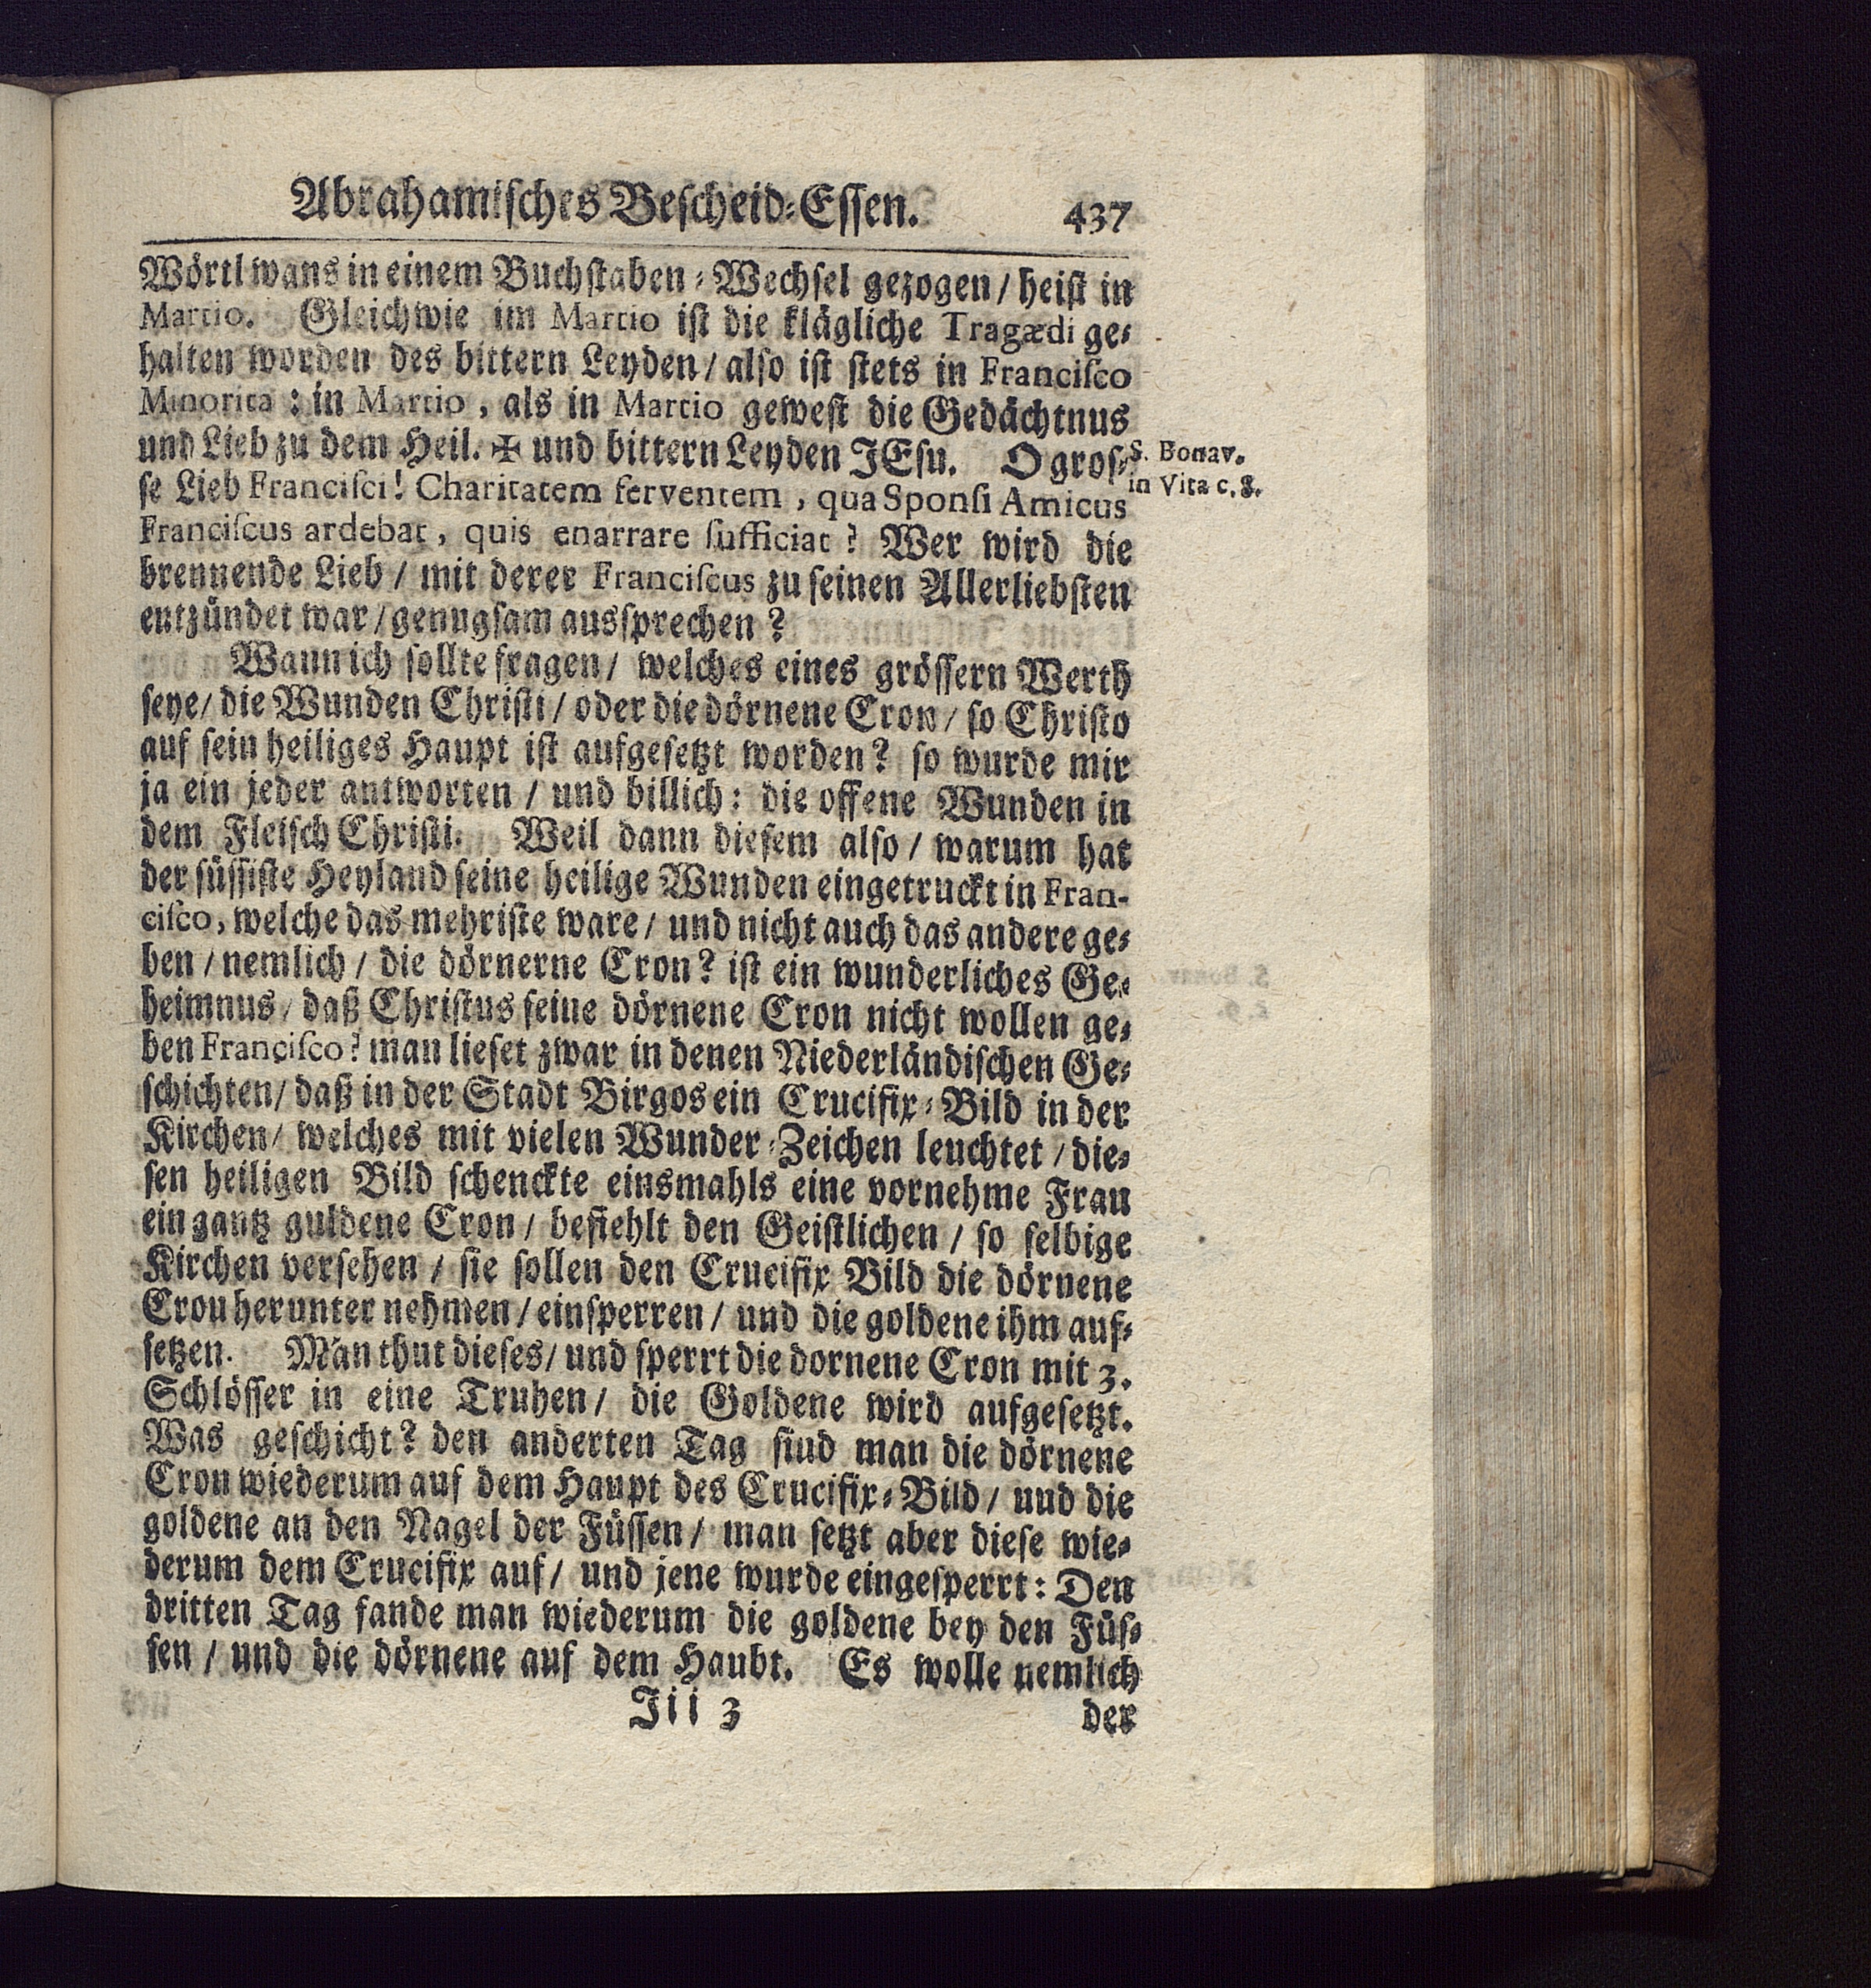 Abrahamisches Bescheid-Essen. 437
Wörtl wans in einem Buchstaben-Wechsel gezogen / heist in
Martio. Gleichwie im Martio ist die klägliche Tragædi ge-
halten worden des bittern Leyden / also ist stets in Francisco
Minorita : in Martio, als in Martio gewest die Gedächtnus
und Lieb zu dem Heil. ✠ und bittern Leyden JEsu. O gros-
S. Bonav.
in Vita c. 8.
se Lieb Francisci! Charitatem ferventem, qua Sponsi Amicus
Franciscus ardebat, quis enarrare sufficiat? Wer wird die
brennende Lieb / mit derer Franciscus zu seinen Allerliebsten
entzündet war / genugsam aussprechen?
Wann ich sollte fragen / welches eines grössern Werth
seye / die Wunden Christi / oder die dörnene Cron / so Christo
auf sein heiliges Haupt ist aufgesetzt worden? so wurde mir
ja ein jeder antworten / und billich: die offene Wunden in
dem Fleisch Christi. Weil dann diesem also / warum hat
der süssiste Heyland seine heilige Wunden eingetruckt in Fran-
cisco, welche das mehriste ware / und nicht auch das andere ge-
ben / nemlich / die dörnerne Cron? ist ein wunderliches Ge-
heimnus / daß Christus seine dörnene Cron nicht wollen ge-
ben Francisco? man lieset zwar in denen Niederländischen Ge-
schichten / daß in der Stadt Birgos ein Crucifix-Bild in der
Kirchen / welches mit vielen Wunder-Zeichen leuchtet / die-
sen heiligen Bild schenckte einsmahls eine vornehme Frau
ein gantz guldene Cron / befiehlt den Geistlichen / so selbige
Kirchen versehen / sie sollen den Crucifix Bild die dörnene
Cron herunter nehmen / einsperren / und die goldene ihm auf-
setzen. Man thut dieses / und sperrt die dornene Cron mit 3.
Schlösser in eine Truhen / die Goldene wird aufgesetzt.
Was geschicht? den anderten Tag find man die dörnene
Cron wiederum auf dem Haupt des Crucifix-Bild / und die
goldene an den Nagel der Füssen / man setzt aber diese wie-
derum dem Crucifix auf / und jene wurde eingesperrt: Den
dritten Tag fande man wiederum die goldene bey den Füs-
sen / und die dörnene auf dem Haubt. Es wolle nemlich
Jii 3 der